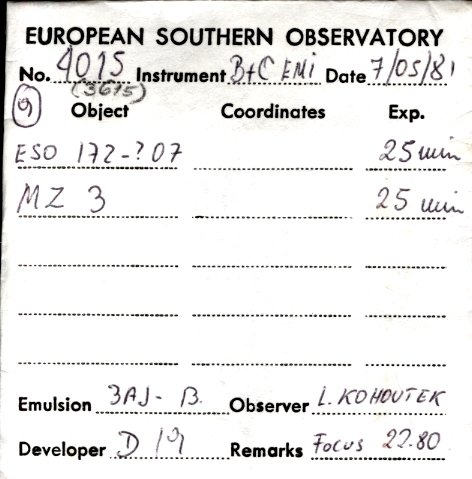 EUROPEAN SOUTHERN OBSERVATORY
No. 4015 Instrument B+C EMI Date 7/05/81
(3615)
9 Object Coordinates Exp.
ESO 172-?07 25 min
MZ 3 25 min
Emulsion 3AJ- B. Observer L. KOHOUTEK
Developer D 19 Remarks Focus 22.80